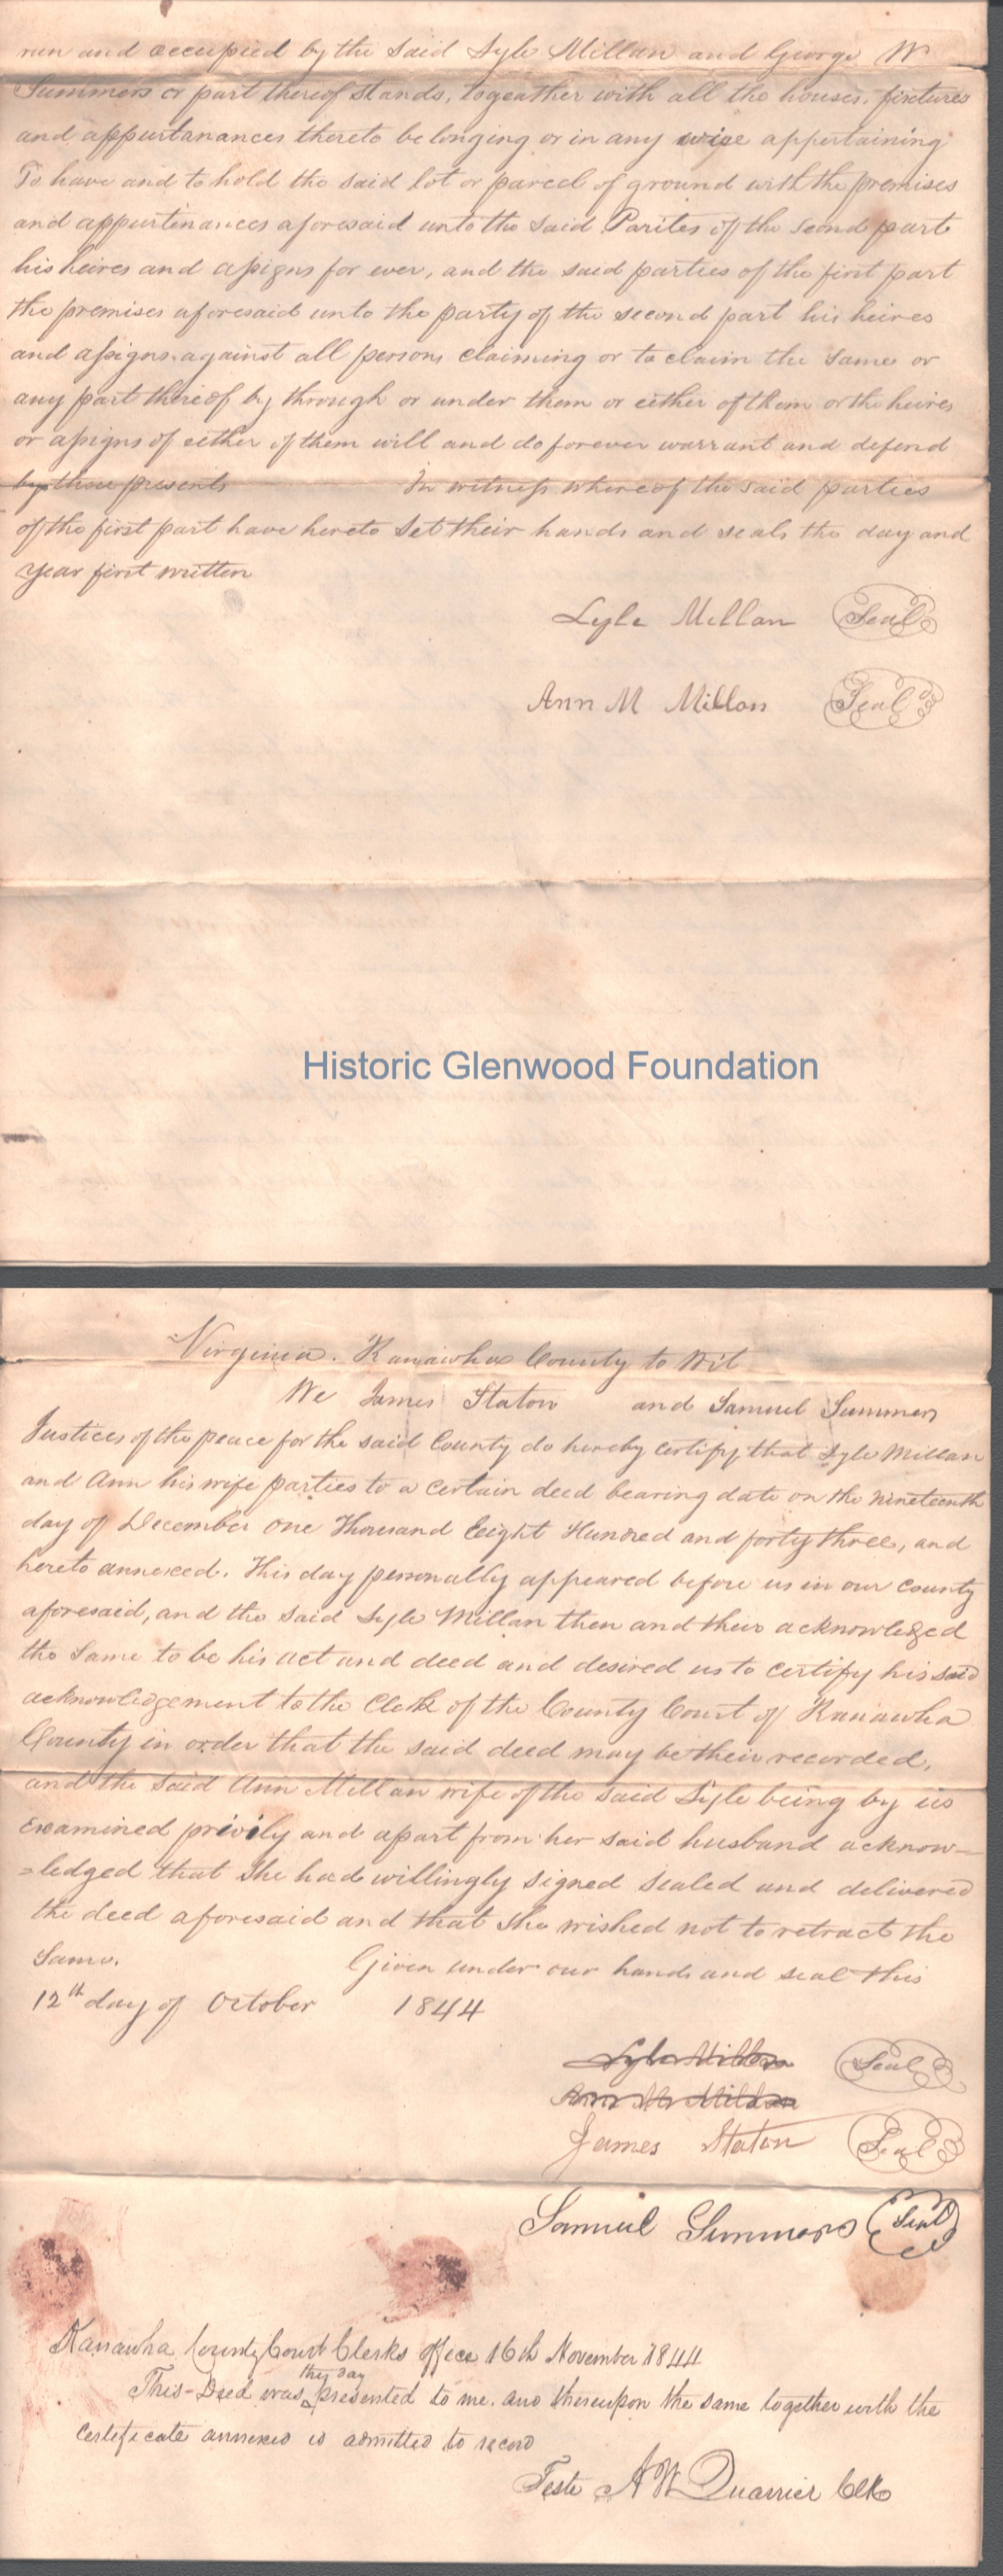 run and occupied by the said Lyle Millan and George W
Summers or part thereof stands, togeather with all the houses, fixtures
and appurtanances thereto belonging or in any wise appertaining
To have and to hold the said lot or parcel of ground with the premises
and appurtinances aforesaid unto the said Parites of the second part
his heires and assigns for ever, and the said parties of the first part
the premises aforesaid unto the party of the second part his heires
and assigns against all persons claiming or to claim the same or
any part thereof by through or under them or either of them or the heires
or assigns of either of them will and do forever warrant and defend
by these presents In witness whereof the said parties
of the first part have hereto set their hands and seals the day and
year first written
Lyle Millan Seal
Ann M Millan Seal
Historic Glenwood Foundation
Virginia. Kanawha County to Wit
We James Staton and Samuel Summers
Justices of the peace for the said County do hereby certify that Lyle Millan
and Ann his wife parties to a certain deed bearing date on the nineteenth
day of December One Thousand Eeight Hundred and forty three, and
hereto annexed. This day personally appeared before us in our county
aforesaid, and the said Lyle Millan then and their acknowledged
the same to be his act and deed and desired us to certify his said
acknowledgement to the Clerk of the County Court of Kanawha
County in order that the said deed may be their recorded,
and the said Ann Millan wife of the said Lyle being by us
examined privily and apart from her said husband acknow-
=ledged that she had willingly signed sealed and delivered
the deed aforesaid and that she wished not to retract the
same. Given under our hands and seal this
12th day of October 1844
Lyle Millan Seal
Ann M Millan
James Staton Seal
Samuel Summers Seal
Kanawha County Court Clerks office 16th November 1844
This Deed was this day presented to me. and thereupon the same together with the
certificate annexed is admitted to record
Teste A W Quarrier Clk